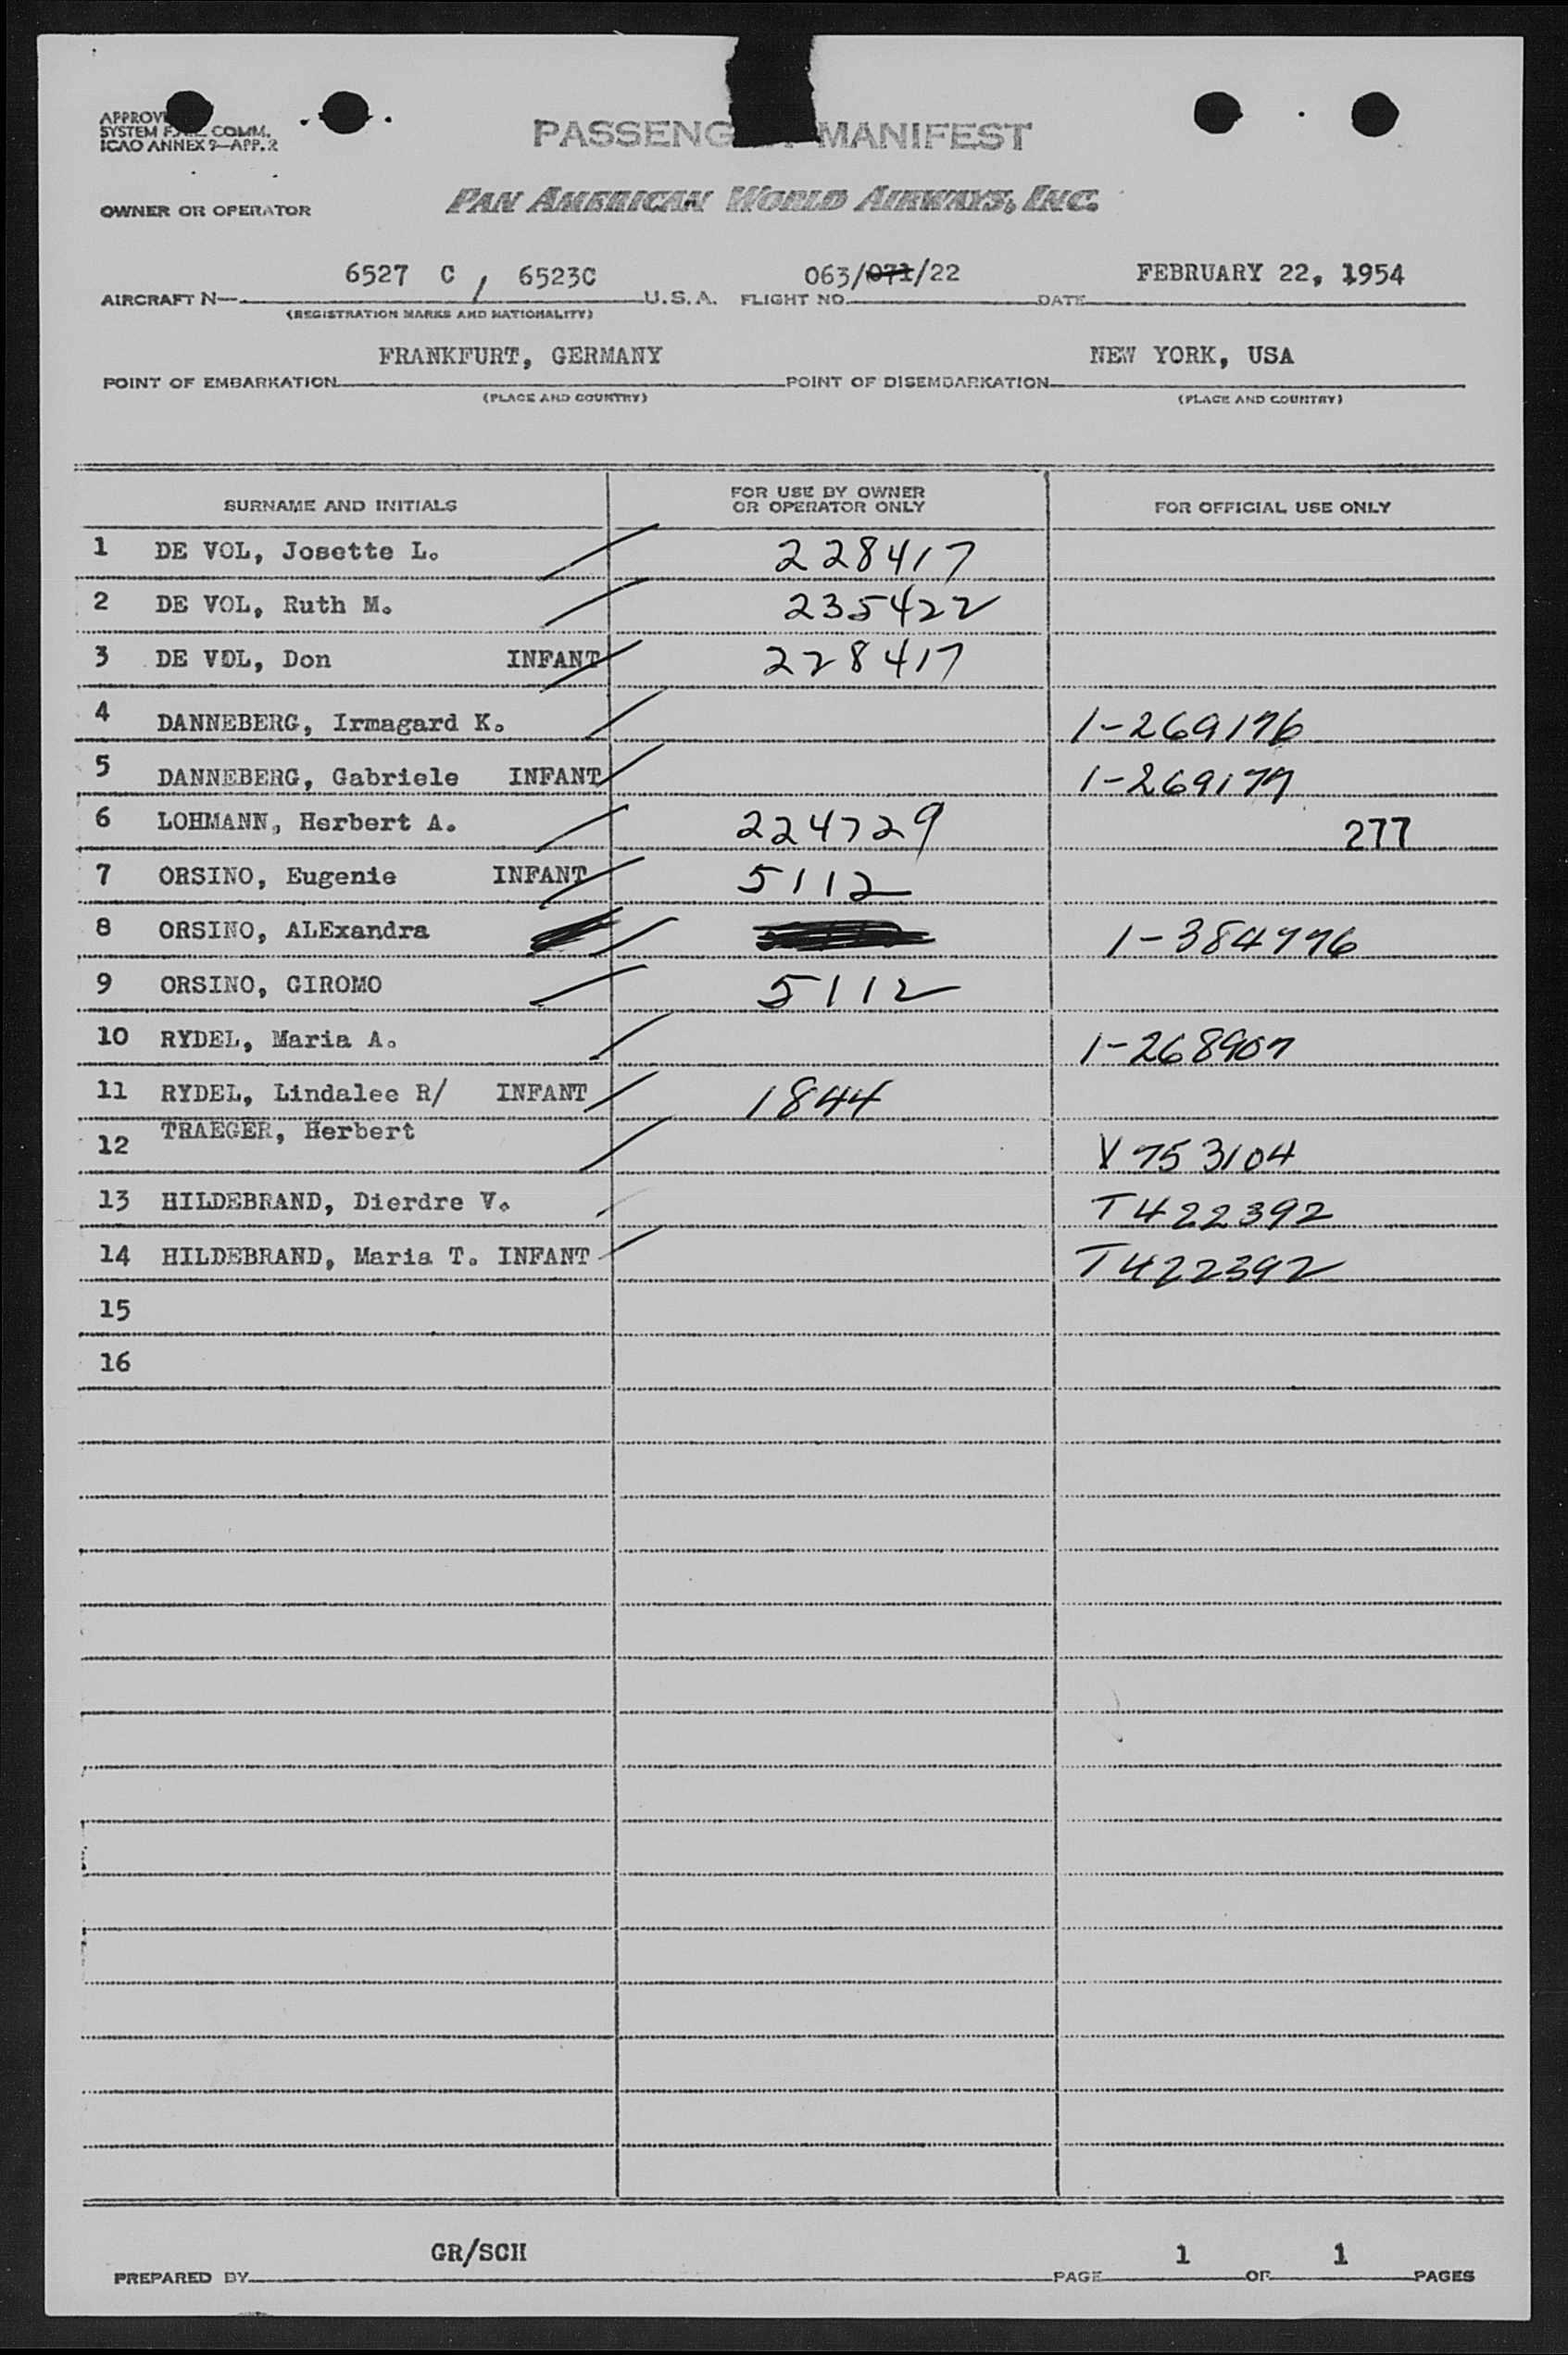 APPROV
SYSTEM F.A.L. COMM.
ICAO ANNEX 9—APP. 2
PASSENG MANIFEST
OWNER OR OPERATOR PAN AMERICAN WORLD AIRWAYS, INC.
AIRCRAFT N— 6527 C / 6523C U.S.A. FLIGHT NO. 063/071/22 DATE FEBRUARY 22, 1954
(REGISTRATION MARKS AND NATIONALITY)
POINT OF EMBARKATION FRANKFURT, GERMANY POINT OF DISEMBARKATION NEW YORK, USA
(PLACE AND COUNTRY) (PLACE AND COUNTRY)
SURNAME AND INITIALS FOR USE BY OWNER OR OPERATOR ONLY FOR OFFICIAL USE ONLY
1 DE VOL, Josette L. 228417
2 DE VOL, Ruth M. 235422
3 DE VOL, Don INFANT 228417
4 DANNEBERG, Irmagard K. 1-269176
5 DANNEBERG, Gabriele INFANT 1-269177
6 LOHMANN, Herbert A. 224729 277
7 ORSINO, Eugenie INFANT 5112
8 ORSINO, ALExandra 1-384776
9 ORSINO, GIROMO 5112
10 RYDEL, Maria A. 1-268907
11 RYDEL, Lindalee R/ INFANT 1844
12 TRAEGER, Herbert V 753104
13 HILDEBRAND, Dierdre V. T422392
14 HILDEBRAND, Maria T. INFANT T422392
15
16
PREPARED BY GR/SCH PAGE 1 OF 1 PAGES